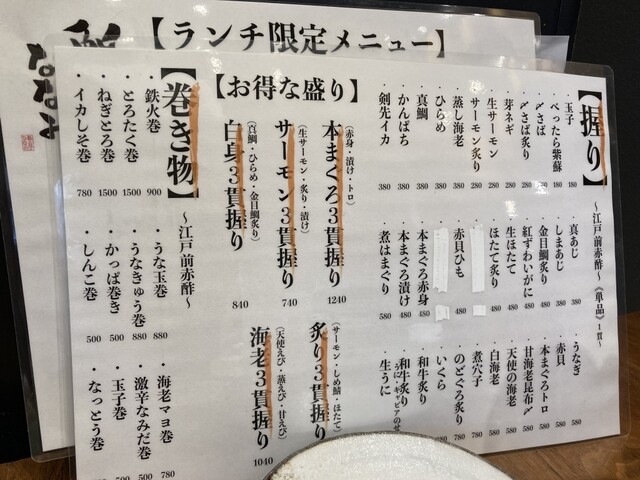 【ランチ限定メニュー】
【握り】
～江戸前赤酢～《単品》1貫～
・玉子 180
・べったら紫蘇 180
・〆さば 280
・〆さば炙り 280
・芽ネギ 280
・生サーモン 280
・サーモン炙り 280
・蒸し海老 380
・ひらめ 380
・真鯛 380
・かんぱち 380
・剣先イカ 380
・真あじ 380
・しまあじ 380
・金目鯛炙り 480
・紅ずわいがに 480
・生ほたて 480
・ほたて炙り 480
・赤貝ひも 480
・本まぐろ赤身 480
・本まぐろ漬け 480
・煮はまぐり 580
・うなぎ 580
・赤貝 580
・本まぐろトロ 580
・甘海老昆布〆 580
・天使の海老 580
・白海老 580
・煮穴子 780
・のどぐろ炙り 780
・いくら
・和牛炙り
・和牛炙り
うに・キャビアのせ
・生うに
【お得な盛り】
(赤身・漬け・トロ)
本まぐろ3貫握り 1240
(生サーモン・炙り・漬け)
サーモン3貫握り 740
(真鯛・ひらめ・金目鯛炙り)
白身3貫握り 840
(サーモン・しめ鯖・ほたて)
炙り3貫握り
(天使えび・蒸えび・甘えび)
海老3貫握り 1040
【巻き物】
～江戸前赤酢～
・鉄火巻 900
・とろたく巻 1500
・ねぎとろ巻 1500
・イカしそ巻 780
・うな玉巻 880
・うなきゅう巻 880
・かっぱ巻き 500
・しんこ巻 500
・海老マヨ巻 780
・激辛なみだ巻 500
・玉子巻
・なっとう巻